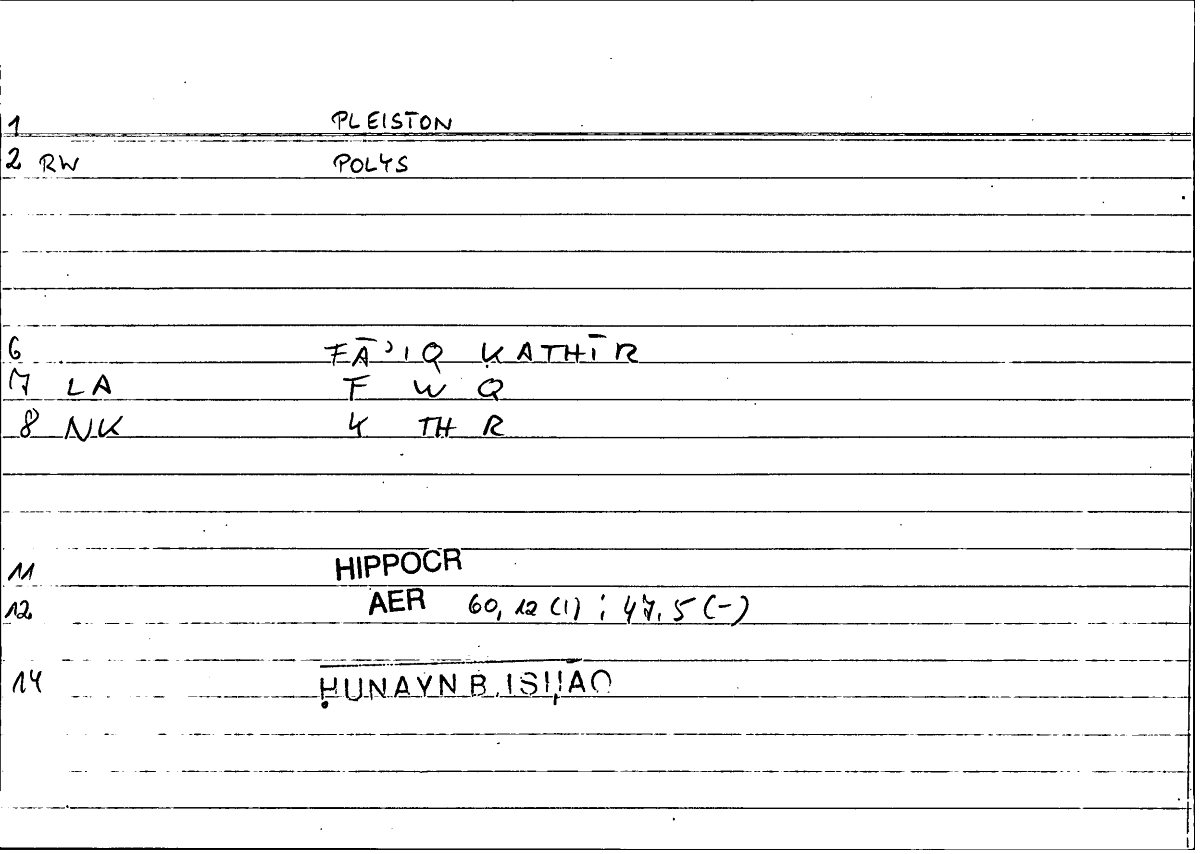 1 PLEISTON
2 RW POLYS
6 FĀʾIQ KATHĪR
7 LA F W Q
8 NK K TH R
11 HIPPOCR
12 AER 60, 12 (1) ; 47, 5 (-)
14 ḤUNAYN B. ISḤĀQ